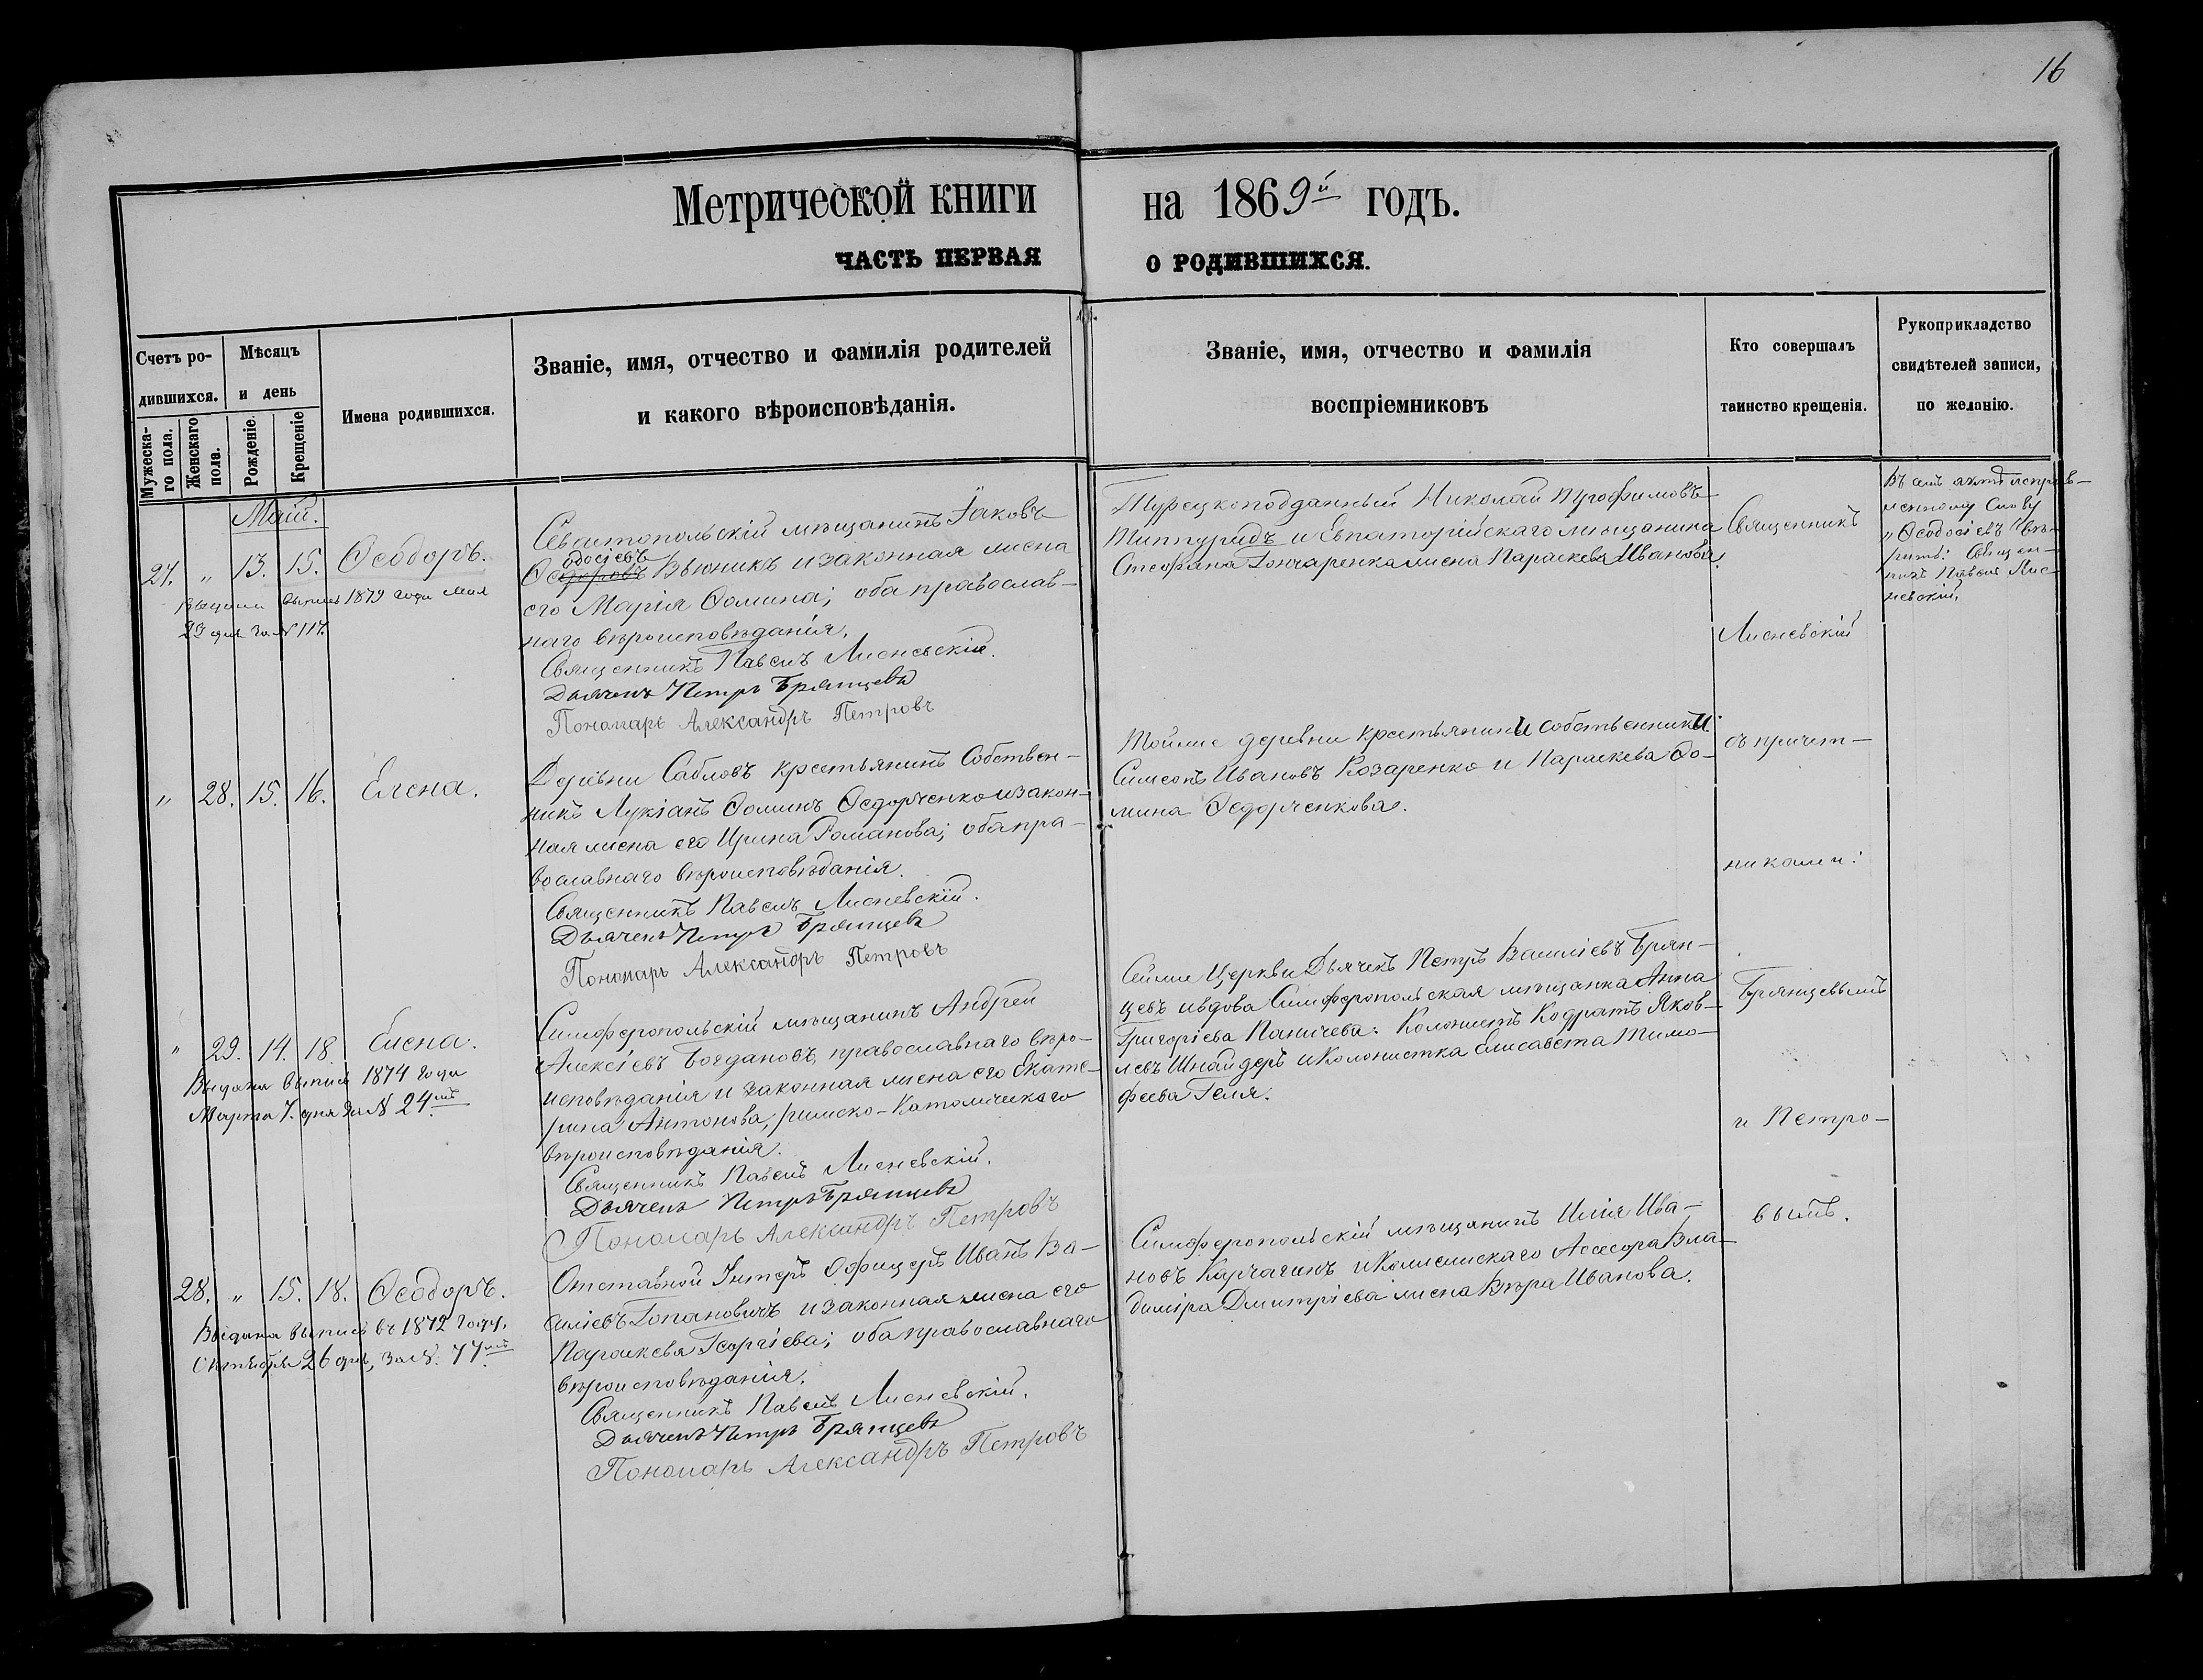 16
Метрической книги на 1869й годъ.
ЧАСТЬ ПЕРВАЯ О РОДИВШИХСЯ.
Счетъ ро-
дившихся.
Мужеска-
го пола.
Женскаго
пола.
Мѣсяцъ
и день
Рожденіе.
Крещеніе
Имена родившихся.
Званіе, имя, отчество и фамилія родителей
и какого вѣроисповѣданія.
Званіе, имя, отчество и фамилія
воспріемниковъ
Кто совершалъ
таинство крещенія.
Рукоприкладство
свидѣтелей записи,
по желанію.
Май.
27. „ 13. 15. Ѳеодоръ.
выпись 1879 года мая
23 дня за № 117.
Севастопольскій мѣщанинъ Іаковъ
одосіевъ
Ѳедоровъ Вьюникъ и законная жена
его Марія Ѳомина; оба православ-
наго вѣроисповѣданія.
Священникъ Павелъ Лисневскій.
Дьячекъ Петръ Брянцевъ
Пономарь Александръ Петровъ
Турецкоподданный Николай Трофимовъ
и Евпаторійскаго мѣщанина
Стефана Гончаренка жена Параскева Иванова.
Въ семъ актѣ исправ-
ленному слову
„Ѳеодосіевъ" вѣ-
рить: Священ-
никъ Павелъ Лис-
невскій.
„ 28. 15. 16. Елена.
Деревни Сабловъ крестьянинъ Собствен-
никъ Лукіанъ Ѳоминъ Ѳедорченко и закон-
ная жена его Ирина Романова; оба пра-
вославнаго вѣроисповѣданія.
Священникъ Павелъ Лисневскій.
Дьячекъ Петръ Брянцевъ
Пономарь Александръ Петровъ
Тойже деревни крестьянини собственники:
Симеонъ Ивановъ Козаренко и Параскева Ѳо-
мина Ѳедорченкова.
„ 29. 14. 18. Елена.
Выдана выпись 1874 года
Марта 7. дня за № 24мъ
Симферопольскій мѣщанинъ Андрей
Алексіевъ Богдановъ, православнаго вѣро-
исповѣданія и законная жена его Екате-
рина Антонова, римско-Католическаго
вѣроисповѣданія.
Священникъ Павелъ Лисневскій.
Дьячекъ Петръ Брянцевъ
Пономарь Александръ Петровъ
Сейже Церкви Дьячекъ Петръ Василіевъ Брян-
цевъ и вдова Симферопольская мѣщанка Анна
Григоріева Паничева: Колонистъ Кодратъ Яков-
левъ Шнайдеръ и Колонистка Елисавета Тимо-
феева Геля.
28. „ 15. 18. Ѳеодоръ.
Выдана выпись въ 1872 году.
Октября 26 дня, за №. 77мъ
Отставной Унтеръ Офицеръ Иванъ Ва-
силіевъ Гопановичъ и законная жена его
Параскева Георгіева; оба православнаго
вѣроисповѣданія.
Священникъ Павелъ Лисневскій.
Дьячекъ Петръ Брянцевъ
Пономарь Александръ Петровъ
Симферопольскій мѣщанинъ Илія Ива-
новъ Карчагинъ и Колежскаго Асесора Вла-
диміра Дмитріева жена Вѣра Иванова.
Священникъ
Лисневскій
съ причет-
никами:
Брянцевымъ
и Петро-
вымъ.